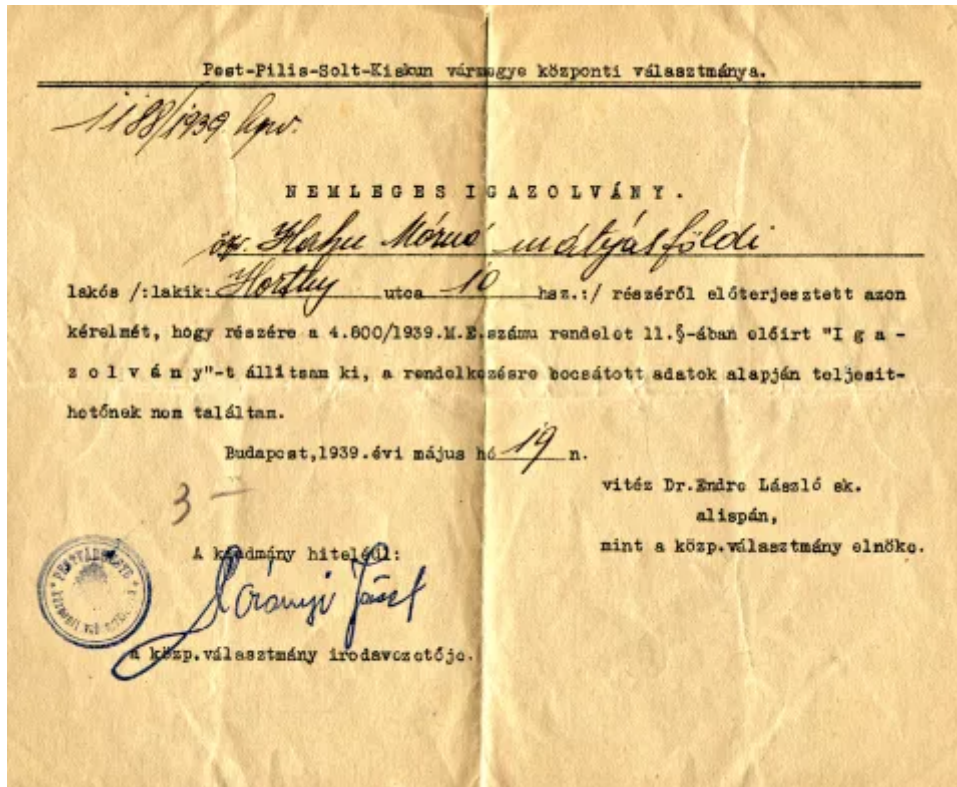 Pest-Pilis-Solt-Kiskun vármegye központi választmánya.
1188/1939. kpv.
N E M L E G E S I G A Z O L V Á N Y .
özv. Hahn Mórné mátyásföldi
lakós /:lakik: Horthy utca 10 hsz.:/ részéről előterjesztett azon
kérelmét, hogy részére a 4.800/1939.M.E.számu rendelet 11.§-ában előirt "I g a -
z o l v á n y"-t állitsam ki, a rendelkezésre bocsátott adatok alapján teljesit-
hetőnek nem találtam.
Budapest,1939.évi május hó 19 n.
vitéz Dr.Endre László sk.
alispán,
mint a közp.választmány elnöke.
3 —
A kiadmány hiteléül:
József
a közp.választmány irodavezetője.